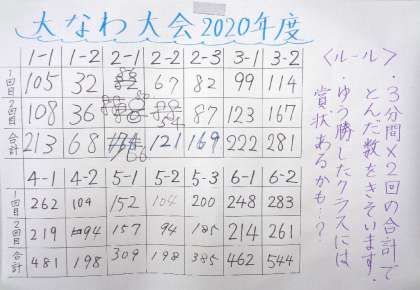 大なわ大会2020年度
1-1 1-2 2-1 2-2 2-3 3-1 3-2
1回目 105 32 67 82 99 114
2回目 108 36 54 87 123 167
合計 213 68 121 169 222 281
4-1 4-2 5-1 5-2 5-3 6-1 6-2
1回目 262 104 152 104 200 248 283
2回目 219 94 157 94 185 214 261
合計 481 198 309 198 385 462 544
〈ルール〉
・3分間×2回の合計で
とんだ数をきそいます。
・ゆう勝したクラスには
賞状あるかも…?